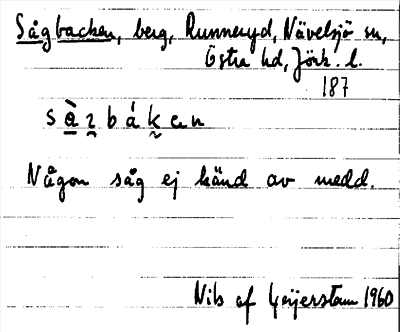 Sågbacken, berg, Runneryd, Nävelsjö sn,
Östra hd, Jönk. l.
187
Någon såg ej känd av medd.
Nils af Geijerstam 1960